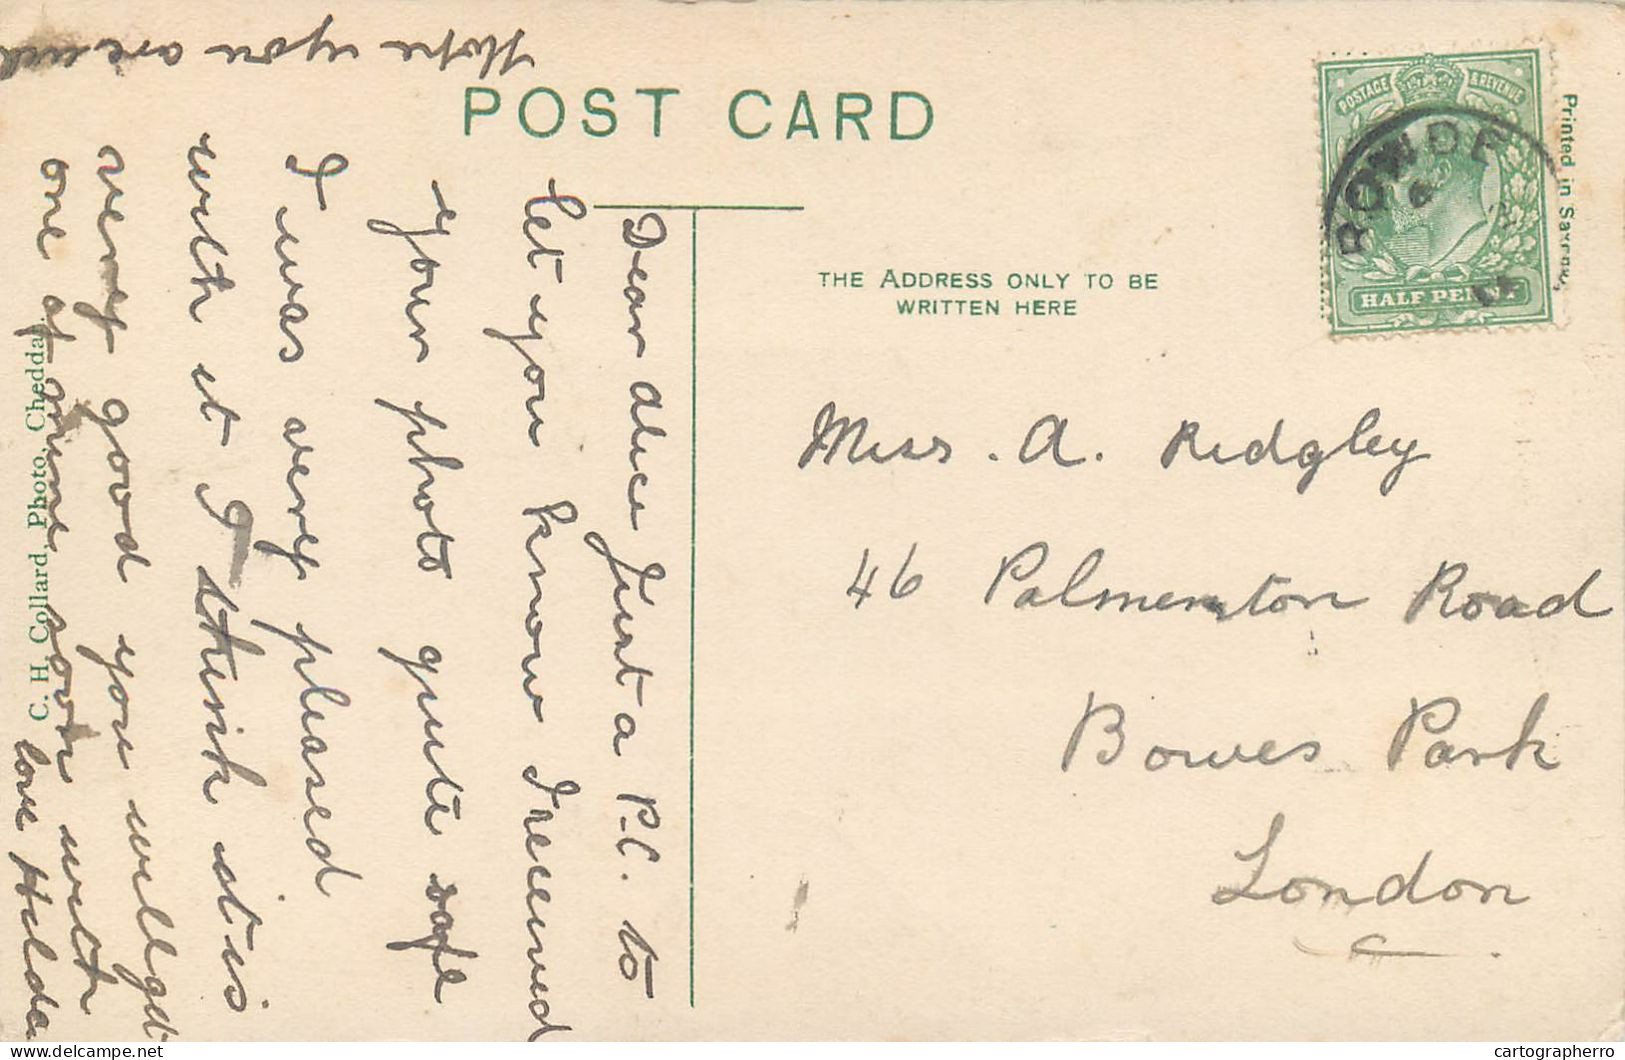 Hope you are well
POST CARD
Dear Alice Just a P.C. to
let you know I received
your photo quite safe
I was very pleased
with it I think it is
very good you will get
one of mine soon with
love Hilda
C. H. Collard, Photo, Cheddar.
THE ADDRESS ONLY TO BE
WRITTEN HERE
POSTAGE & REVENUE
HALF PENNY
Printed in Saxony.
Miss. A. Ridgley
46 Palmerston Road
Bowes Park
London
cartographerro